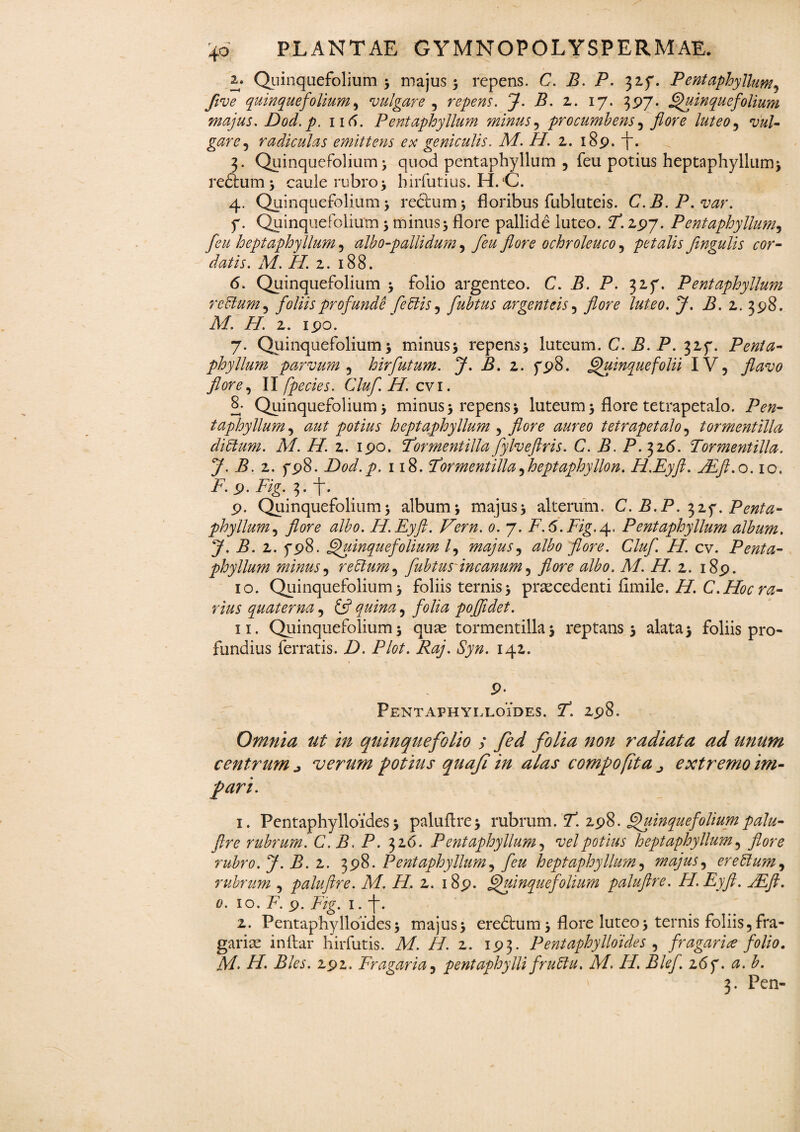 40 PLANTAE GYMNOPOLYSPERMAE.
2. Quinquefolium ; majus ; repens. C. B. P. 325. Pentaphyllum,
ſive quinquefolium, vulgare , repens. J. B. 2. 17. 397. Quinquefolium
majus. Dod. p. 116. Pentaphyllum minus, procumbens, flore luteo, vul-
gare, radiculas emittens ex geniculis. M. H. 2. 189. †.
3. Quinquefolium ; quod pentaphyllum , ſeu potius heptaphyllum;
rectum ; caule rubro; hirſutius. H. C.
4. Quinquefolium ; rectum ; floribus ſubluteis. C. B. P. var.
5. Quinquefolium ; minus; flore pallidé luteo. T. 297. Pentaphyllum,
ſeu heptaphyllum, albo-pallidum, ſeu flore ochroleuco, petalis ſingulis cor-
datis. M. H. 2. 188.
6. Quinquefolium ; folio argenteo. C. B. P. 325. Pentaphyllum
rectum, foliis profundé ſectis, ſubtus argenteis, flore luteo. J. B. 2. 398.
M. H. 2. 190.
7. Quinquefolium ; minus; repens; luteum. C. B. P. 325. Penta-
phyllum parvum , hirſutum. J. B. 2. 598. Quinquefolii IV, flavo
flore, II ſpecies. Cluſ. H. CVI.
8. Quinquefolium ; minus; repens; luteum; flore tetrapetalo. Pen-
taphyllum, aut potius heptaphyllum , flore aureo tetrapetalo, tormentilla
dictum. M. H. 2. 190. Tormentilla ſylveſtris. C. B. P. 326. Tormentilla.
J. B. 2. 598. Dod. p. 118. Tormentilla, heptaphyllon. H. Eyſt. Æſt. o. 10.
F. 9. Fig. 3. †.
9. Quinquefolium; album; majus; alterum. C. B. P. 325. Penta-
phyllum, flore albo. H. Eyſt. Vern. o. 7. F. 6. Fig. 4. Pentaphyllum album.
J. B. 2. 598. Quinquefolium I, majus, albo flore. Cluſ. H. CV. Penta-
phyllum minus, rectum, ſubtus incanum, flore albo. M. H. 2. 189.
10. Quinquefolium ; foliis ternis; præcedenti ſimile. H. C. Hoc ra-
rius quaterna, & quina, folia poſſidet.
11. Quinquefolium; quæ tormentilla; reptans ; alata; foliis pro-
fundius ſerratis. D. Plot. Raj. Syn. 142.
9.
PENTAPHYLLOÏDES. T. 298.
Omnia ut in quinquefolio ; ſed folia non radiata ad unum
centrum, verum potius quaſi in alas compoſita, extremo im-
pari.
1. Pentaphylloïdes; paluſtre; rubrum. T. 298. Quinquefolium palu-
ſtre rubrum. C. B. P. 326. Pentaphyllum, vel potius heptaphyllum, flore
rubro. J. B. 2. 398. Pentaphyllum, ſeu heptaphyllum, majus, erectum,
rubrum , paluſtre. M. H. 2. 189. Quinquefolium paluſtre. H. Eyſt. Æſt.
o. 10. F. 9. Fig. 1. †.
2. Pentaphylloïdes; majus; erectum; flore luteo; ternis foliis, fra-
gariæ inſtar hirſutis. M. H. 2. 193. Pentaphylloïdes , fragariæ folio.
M. H. Bles. 292. Fragaria, pentaphylli fructu. M. H. Bleſ. 265. a. b.
3. Pen-